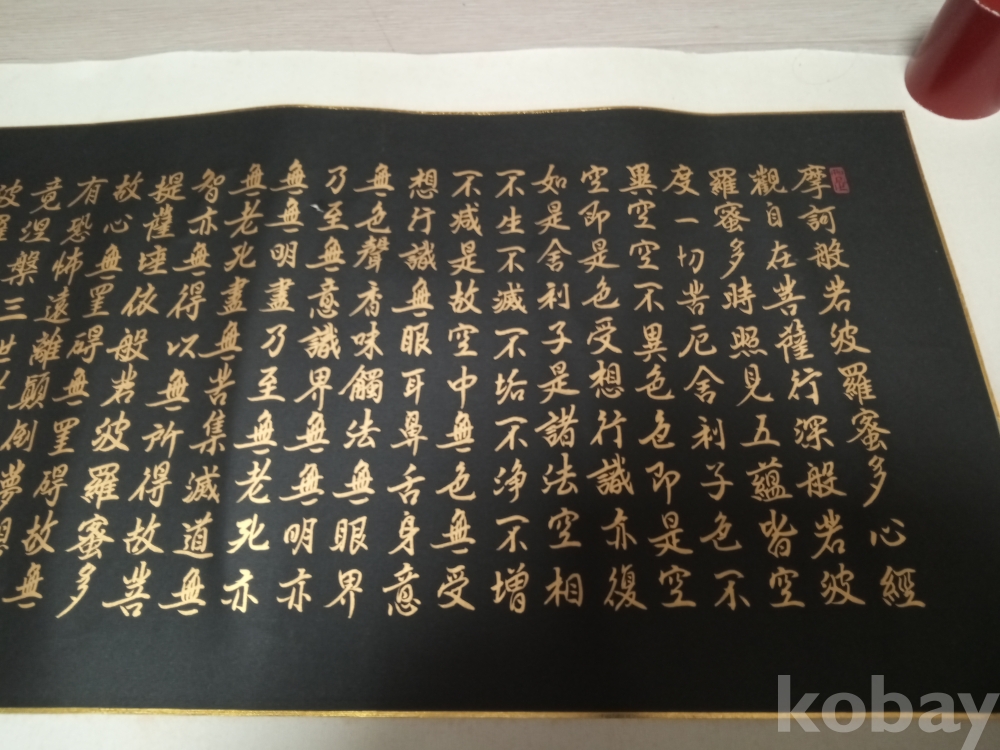 摩訶般若波羅蜜多心經
觀自在菩薩行深般若波
羅蜜多時照見五蘊皆空
度一切苦厄舍利子色不
異空空不異色色即是空
空即是色受想行識亦復
如是舍利子是諸法空相
不生不滅不垢不净不增
不减是故空中無色無受
想行識無眼耳鼻舌身意
無色聲香味觸法無眼界
乃至無意識界無無明亦
無無明盡乃至無老死亦
無老死盡無苦集滅道無
智亦無得以無所得故菩
提薩埵依般若波羅蜜多
故心無罣碍無罣碍故無
有恐怖遠離顛倒夢想
竟涅槃三世
波羅
kobay